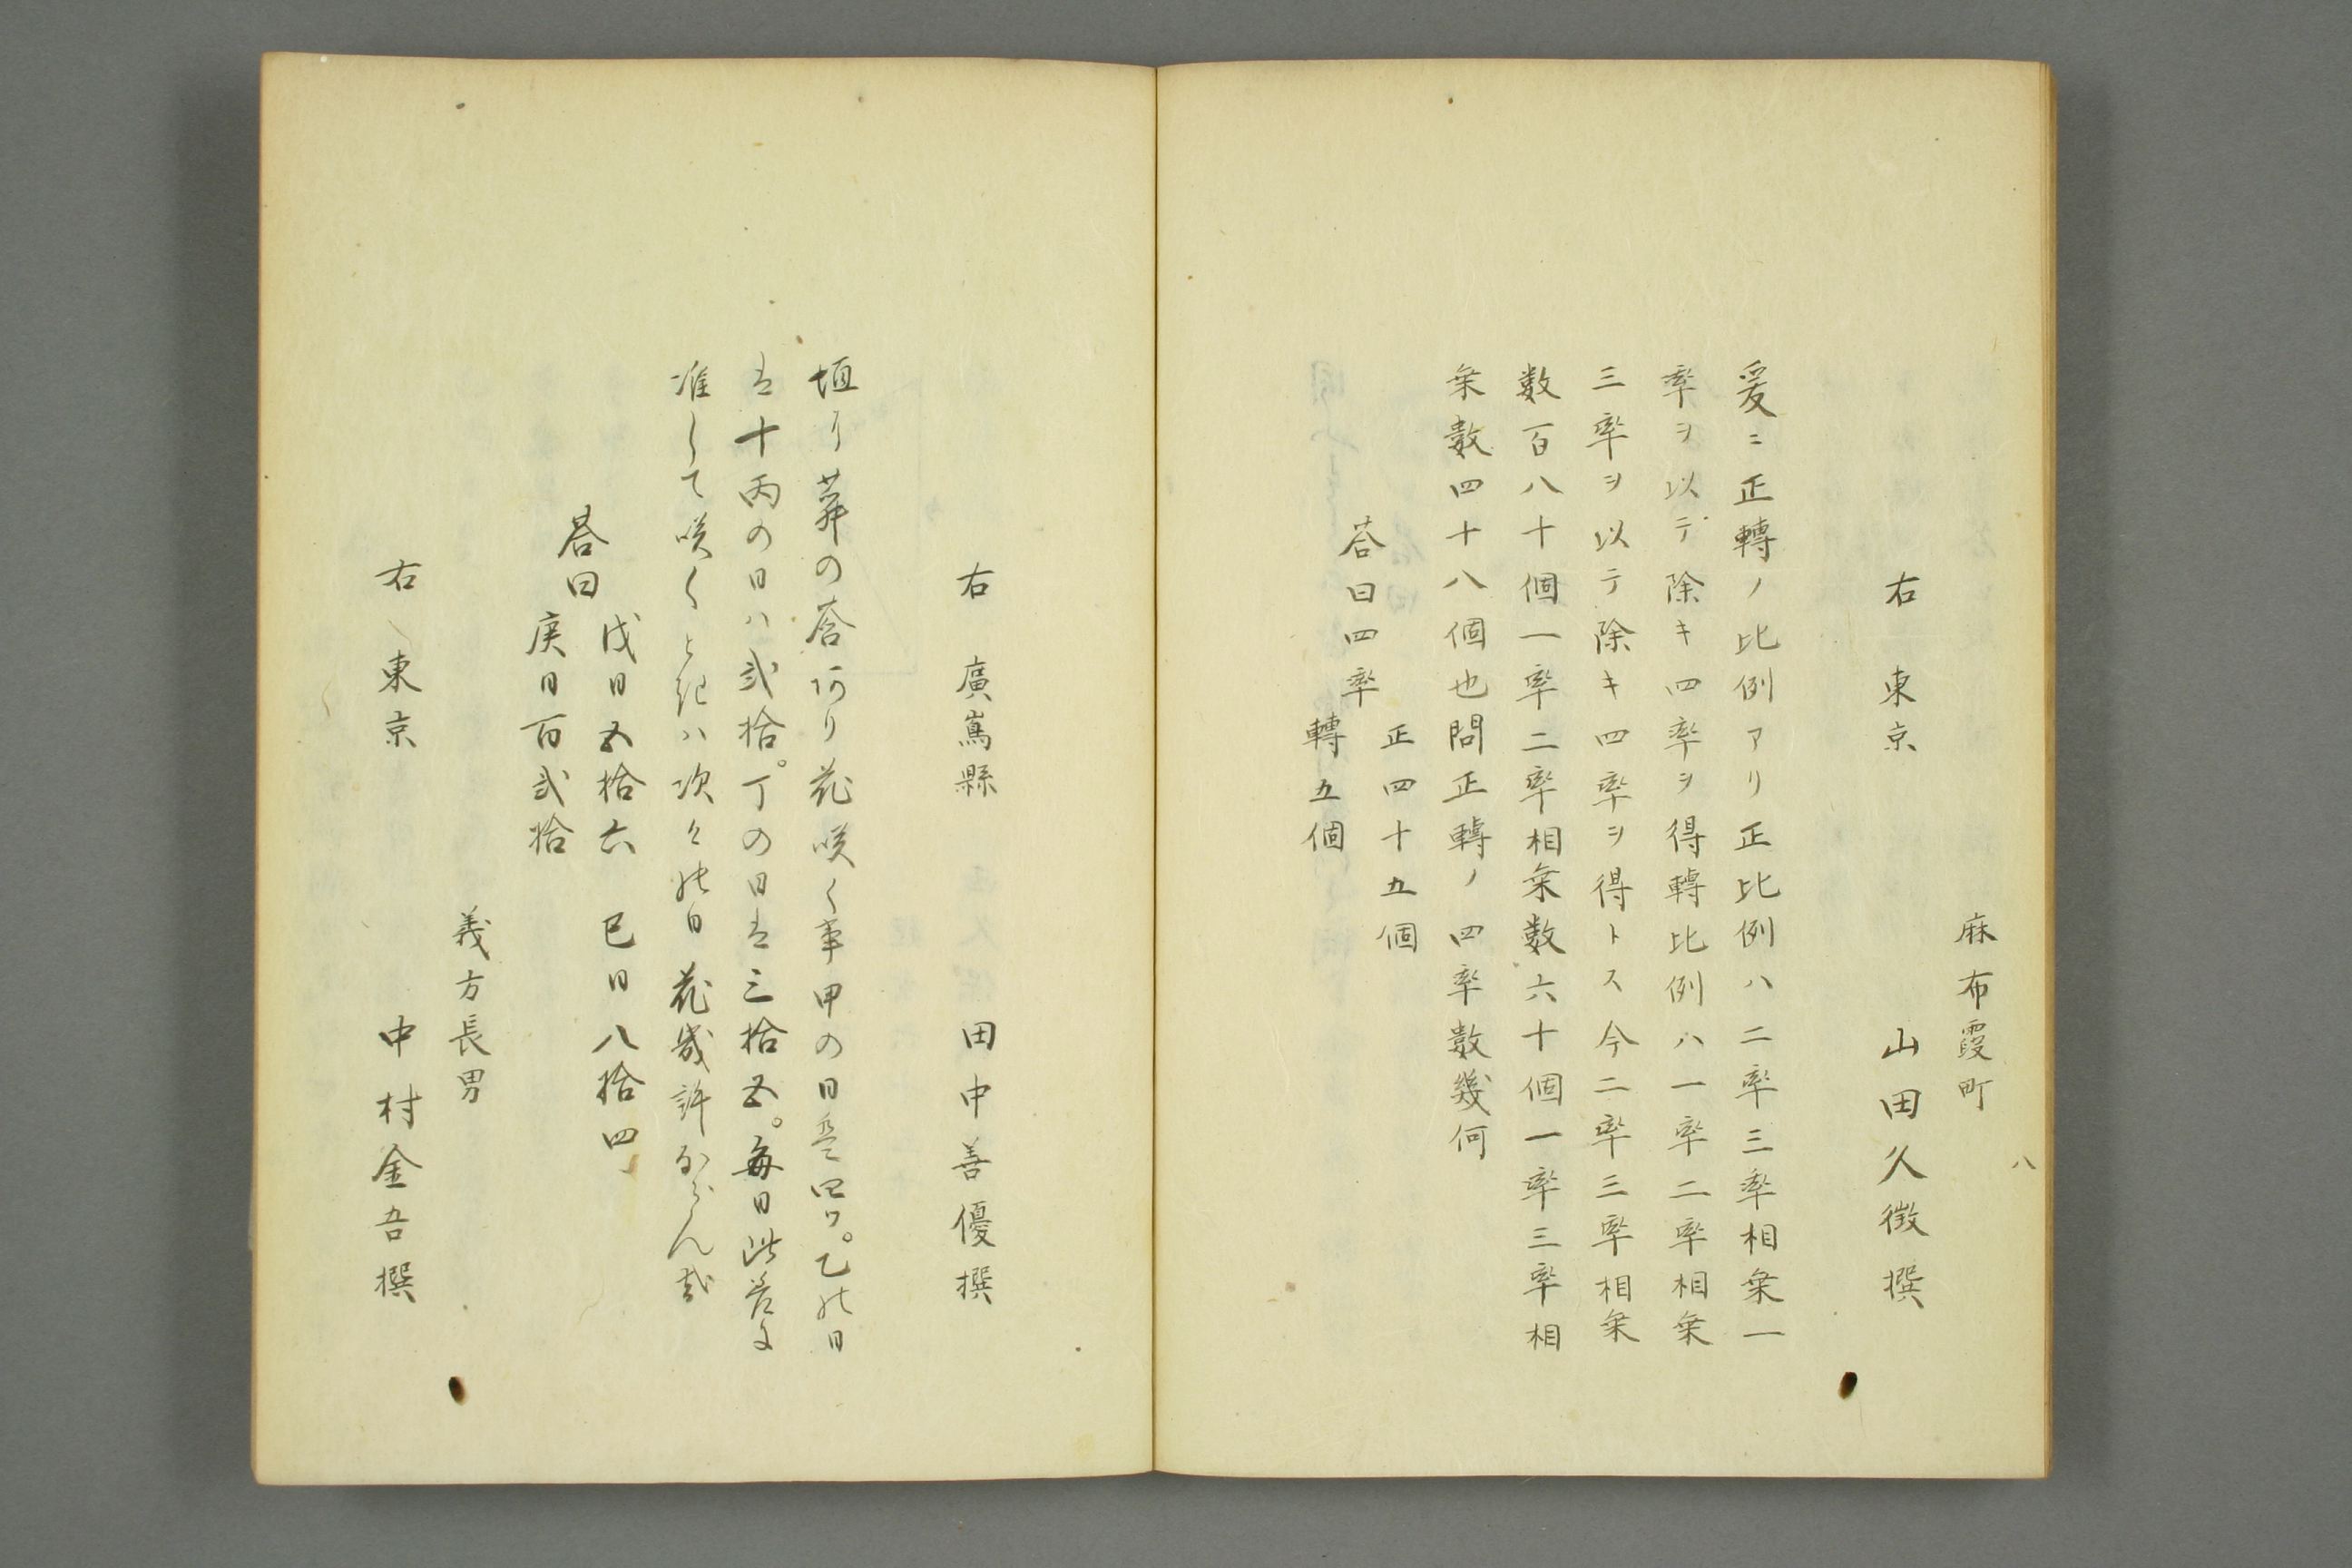 八
麻布霞町
右 東京 山田久徴撰
爰ニ正轉ノ比例アリ正比例ハ二率三率相乗一
率ヲ以テ除キ四率ヲ得轉比例ハ一率二率相乗
三率ヲ以テ除キ四率ヲ得トス今二率三率相乗
数百八十個一率二率相乗数六十個一率三率相
乗数四十八個也問正轉ノ四率数幾何
答曰四率
正四十五個
轉五個
右 廣嶌縣 田中善優撰
垣り蕣の莟何り花咲く事甲の日四ツ。乙能日
十丙の日ハ弐拾。丁の日三拾五。毎日此
准して咲くと紀ハ次々能日花幾許ならん哉
答曰
戊日五拾六 巳日八拾四
庚日百弐拾
義方長男
右 東京 中村金吾撰